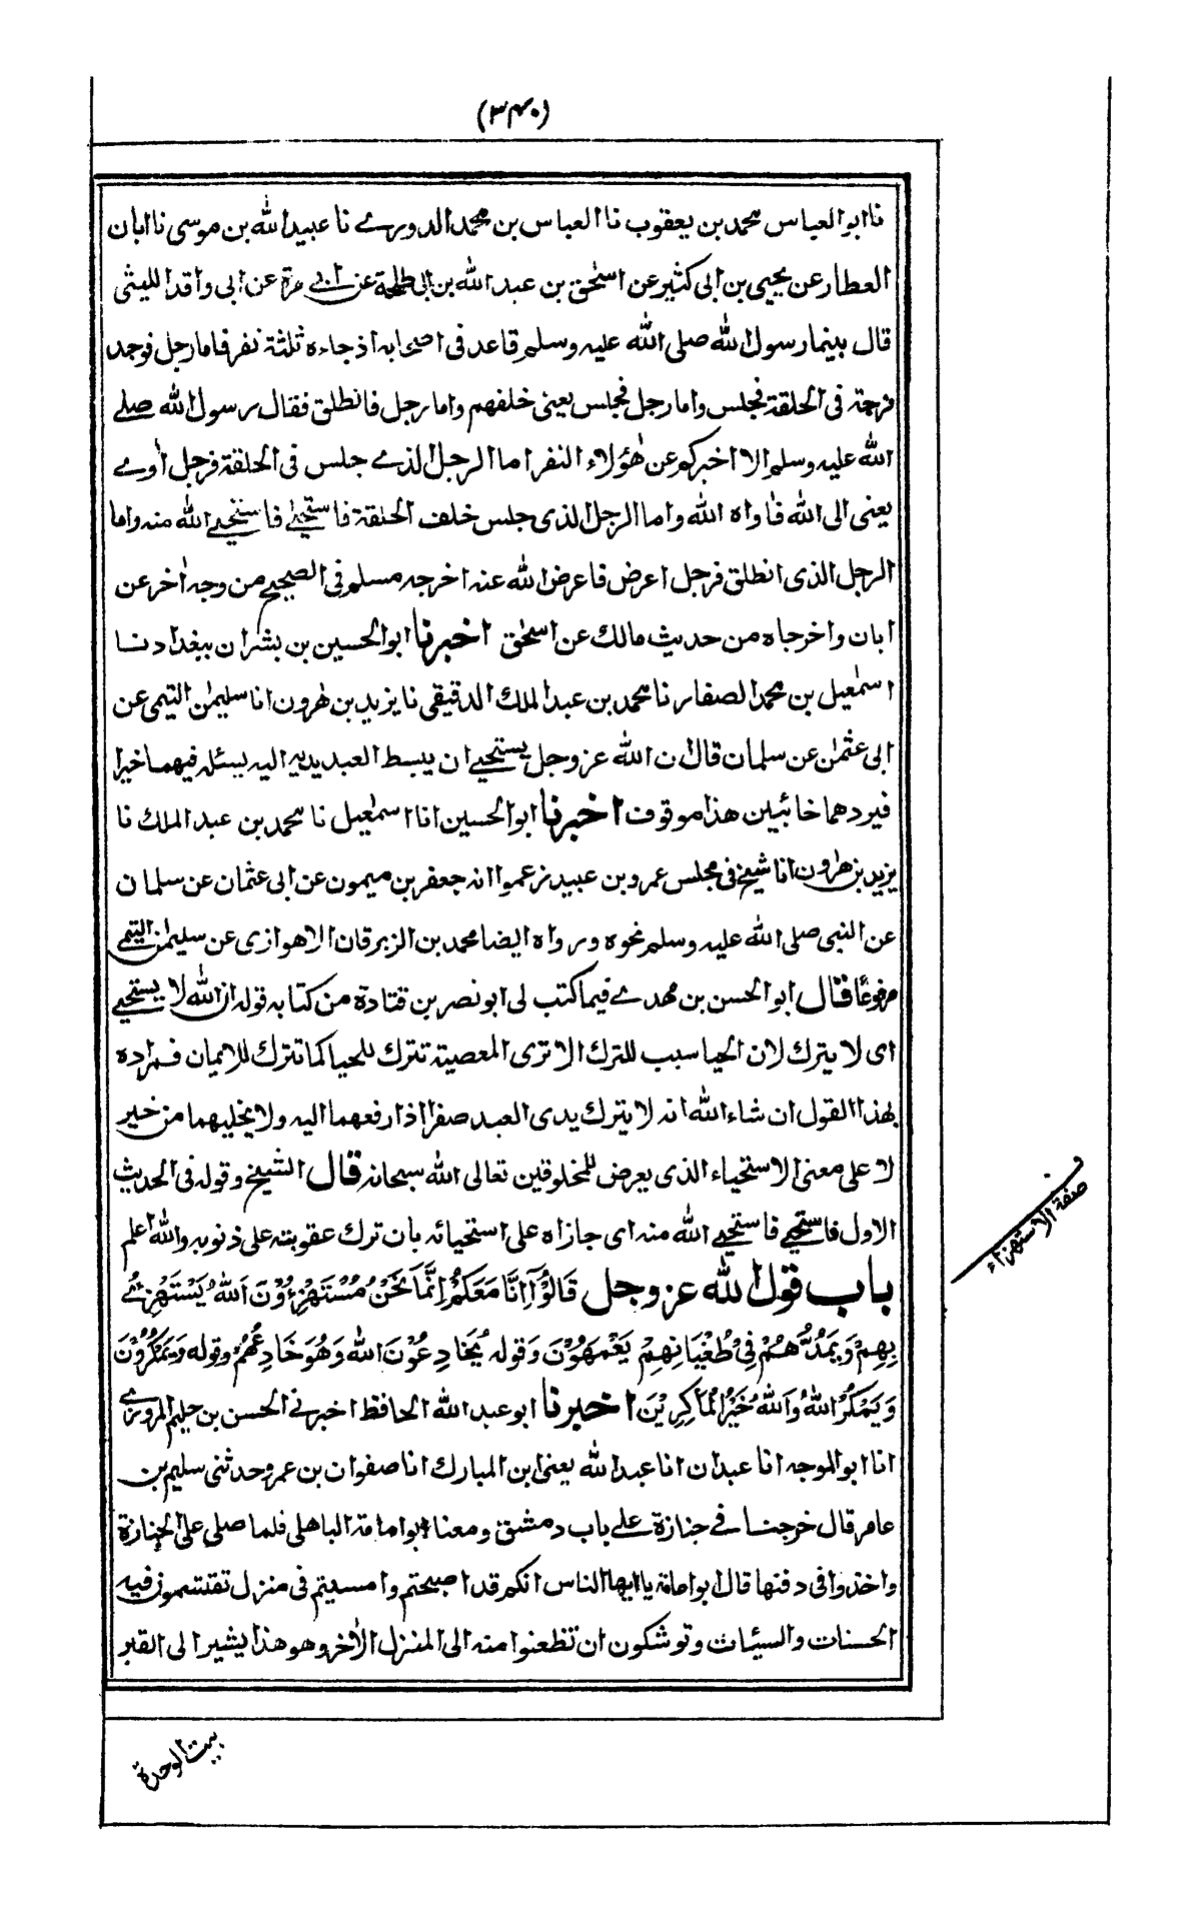 (٣٤٠)
نا ابو العباس محمد بن يعقوب نا العباس بن محمد الدورے نا عبيد الله بن موسى نا ابان
العطار عن يحيى بن ابى كثير عن اسحٰق بن عبد الله بن ابى طلحة عن ابى مرة عن ابى واقد الليثى
قال بينما رسول الله صلى الله عليه وسلم قاعد فى اصحابه اذ جاءه ثلثة نفر فاما رجل فوجد
فرجة فى الحلقة فجلس واما رجل فجلس يعنى خلفهم واما رجل فانطلق فقال رسول الله صلے
الله عليه وسلم الا اخبركم عن هٰؤلاء النفر اما الرجل الذے جلس فى الحلقة فرجل اوے
يعنى الى الله فاٰواه الله واما الرجل الذى جلس خلف الحلقة فاستحيٰے فاستحيے الله منه واما
الرجل الذى انطلق فرجل اعرض فاعرض الله عنه اخرجه مسلم فى الصحيح من وجه اٰخر عن
ابان واخرجاه من حديث مالك عن اسحٰق اخبرنا ابو الحسين بن بشران ببغداد نا
اسمٰعيل بن محمد الصفار نا محمد بن عبد الملك الدقيقى نا يزيد بن هٰرون انا سليمٰن التيمى عن
ابى عثمٰن عن سلمان قال ان الله عز وجل يستحيے ان يبسط العبد يديه اليه يسئله فيهما خيرا
فيردهما خائبين هذا موقوف اخبرنا ابو الحسين انا اسمٰعيل نا محمد بن عبد الملك نا
يزيد بن هٰرون انا شيخ فى مجلس عمرو بن عبيد زعموا انه جعفر بن ميمون عن ابى عثمان عن سلمان
عن النبى صلى الله عليه وسلم نحوه ورواه ايضا محمد بن الزبرقان الاهوازى عن سليمٰن التيمے
مرفوعًا قال ابو الحسن بن مهدے فيما كتب لى ابو نصر بن قتادة من كتابه قوله ان الله لا يستحيے
اى لا يترك لان الحيا سبب للترك الا ترى المعصية تترك للحيا كما تترك للايمان فمراده
بهٰذا القول ان شاء الله انه لا يترك يدى العبد صفرا اذا رفعهما اليه ولا يخليهما من خير
لا على معنى الاستحياء الذى يعرض للمخلوقين تعالى الله سبحانه قال الشيخ وقوله فى الحديث
الاول فاستحيے فاستحيے الله منه اى جازاه على استحيائه بان ترك عقوبته على ذنوبه والله اعلم
باب قول الله عز وجل قَالُوْآ اِنَّا مَعَكُمْ اِنَّمَا نَحْنُ مُسْتَهْزِءُوْنَ اَللهُ يَسْتَهْزِئُ
بِهِمْ وَيَمُدُّهُمْ فِىْ طُغْيَانِهِمْ يَعْمَهُوْنَ وَقوله يُخَادِعُوْنَ اللهَ وَهُوَ خَادِعُهُمْ وقوله وَيَمْكُرُوْنَ
وَيَمْكُرُ اللهُ وَاللهُ خَيْرُ الْمَاكِرِيْنَ اخبرنا ابو عبد الله الحافظ اخبرنى الحسن بن حليم المروزے
انا ابو الموجه انا عبدان انا عبد الله يعنى ابن المبارك انا صفوان بن عمر وحدثنى سليم بن
عامر قال خرجنا فے جنازة علے باب دمشق ومعنا ابو امامة الباهلى فلما صلى على الجنازة
واخذوا فى دفنها قال ابو امامة يا ايها الناس انكم قد اصبحتم وامسيتم فى منزل تقتسمون فيه
الحسنات والسيئات وتوشكون ان تظعنوا منه الى المنزل الاٰخر وهو هذا يشير الى القبر
ف
صفة الاستهزاء
بيت الوحدة